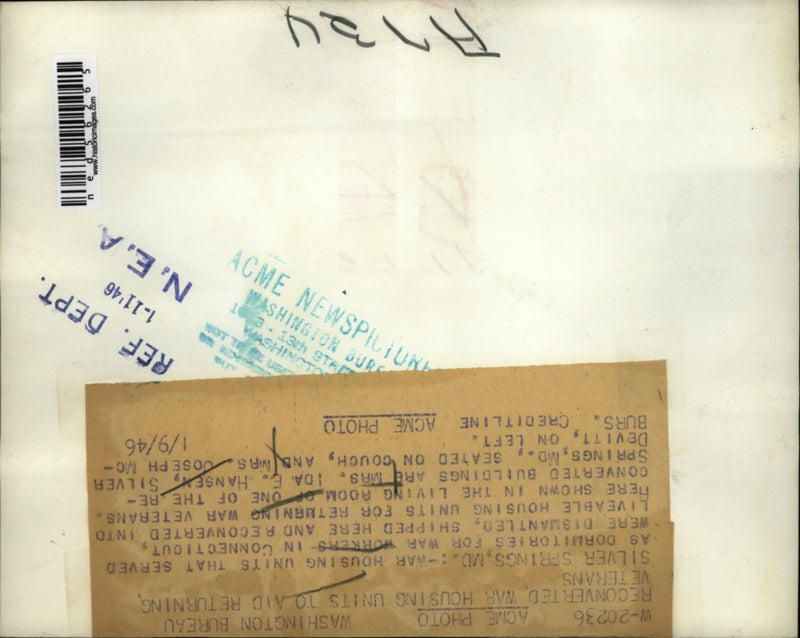 A724
ned56265
www.historicimages.com
N.E.A.
1-11'46
REF. DEPT.
ACME NEWSPICTURE
WASHINGTON BURE
13th STREET
WASHINGTON
NOT TO BE USED
W-20236 ACME PHOTO WASHINGTON BUREAU
RECONVERTED WAR HOUSING UNITS TO AID RETURNING
VETERANS
SILVER SPRINGS, MD.:-WAR HOUSING UNITS THAT SERVED
AS DORMITORIES FOR WAR WORKERS IN CONNECTICUT,
WERE DISMANTLED, SHIPPED HERE AND RECONVERTED INTO
LIVEABLE HOUSING UNITS FOR RETURNING WAR VETERANS.
HERE SHOWN IN THE LIVING ROOM OF ONE OF THE RE-
CONVERTED BUILDINGS ARE MRS. IDA E. HANSEN, SILVER
SPRINGS, MD, SEATED ON COUCH, AND MRS JOSEPH MC-
DEVITT, ON LEFT.
BURS. CREDITLINE ACME PHOTO 1/9/46